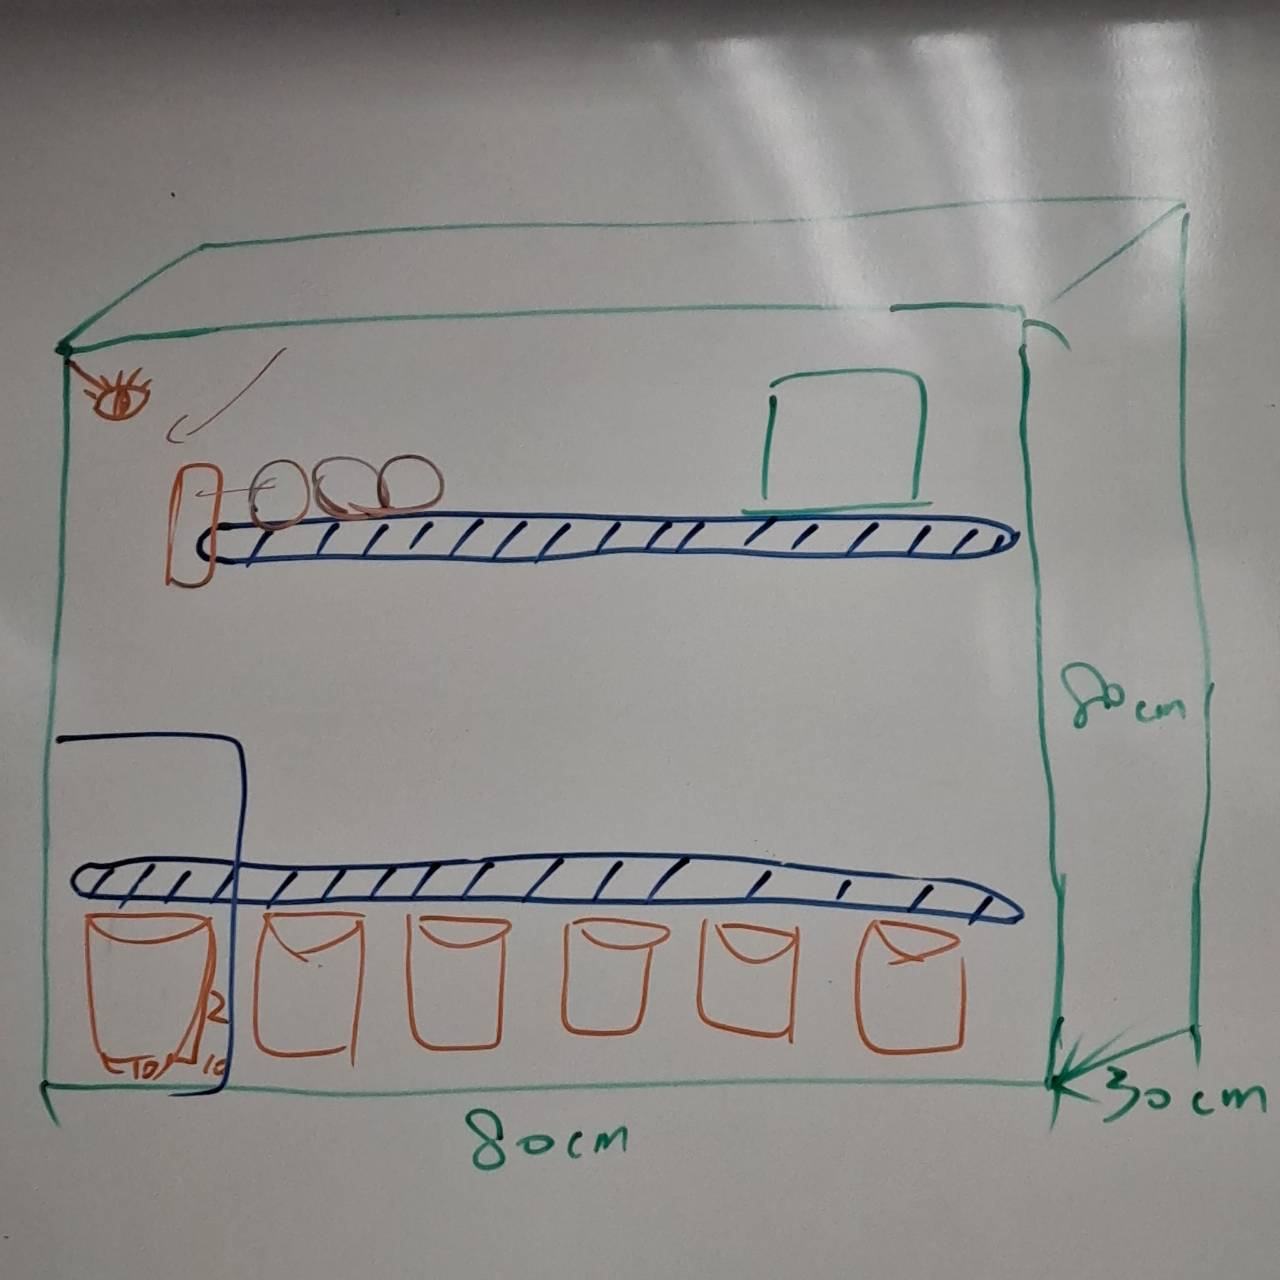 80cm
2
10
10
80cm
30cm